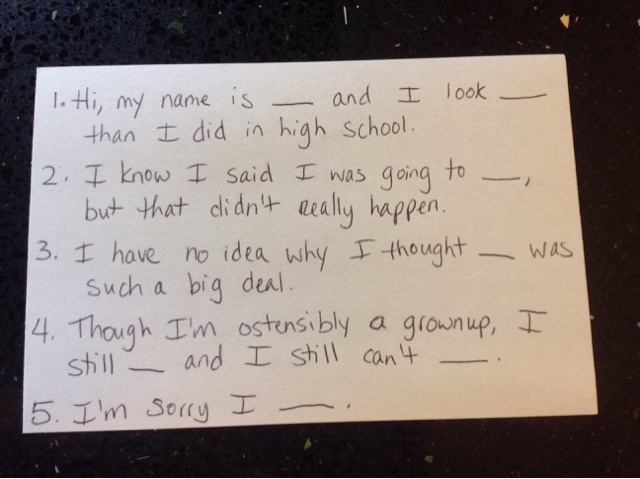 1. Hi, my name is ___ and I look ___
than I did in high school.
2. I know I said I was going to ___,
but that didn't really happen.
3. I have no idea why I thought ___ was
such a big deal.
4. Though I'm ostensibly a grownup, I
still ___ and I still can't ___.
5. I'm sorry I ___.